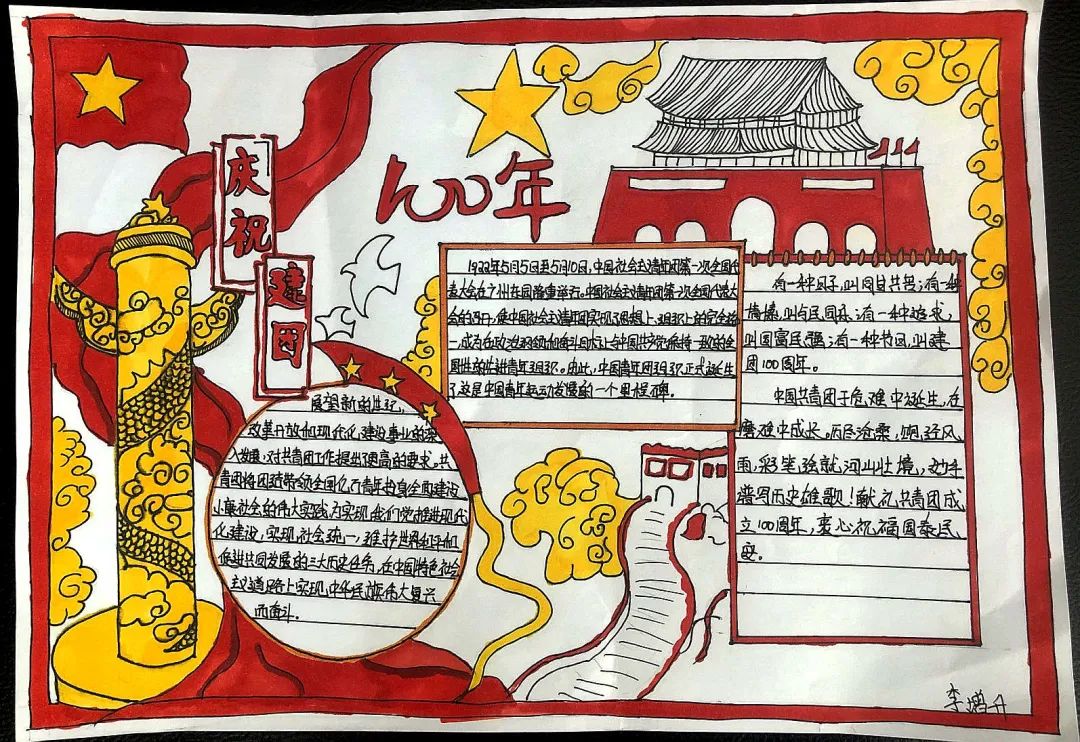 庆祝
建团
100年
1922年5月5日至5月10日,中国社会主义青年团第一次全国代
表大会在广州东园隆重举行。中国社会主义青年团第一次全国代表大
会的召开,使中国社会主义青年团实现了思想上、组织上的完全统
一,成为在政治纲领和奋斗目标上与中国共产党保持一致的全
国性的先进青年组织。由此,中国青年团组织正式诞生
了这是中国青年运动发展的一个里程碑。
有一种因子,叫同舟共舟;有一种
情怀,叫与民同乐;有一种追求,
叫国富民强;有一种节日,叫建
团100周年。
中国共青团于危难中诞生,在
磨难中成长。历尽沧桑,饱经风
雨,彩笔绘就河山壮境,妙手
谱写历史雄歌!献礼共青团成
立100周年,衷心祝福国泰民
安。
展望新的世纪,
改革开放和现代化建设事业的深
入发展,对共青团工作提出更高的要求。共
青团将团结带领全国亿万青年投身全面建设
小康社会的伟大实践,为实现我们党推进现代
化建设,实现社会统一,维护世界和平和
促进共同发展的三大历史任务,在中国特色社会
主义道路上实现中华民族伟大复兴
而奋斗。
李增升